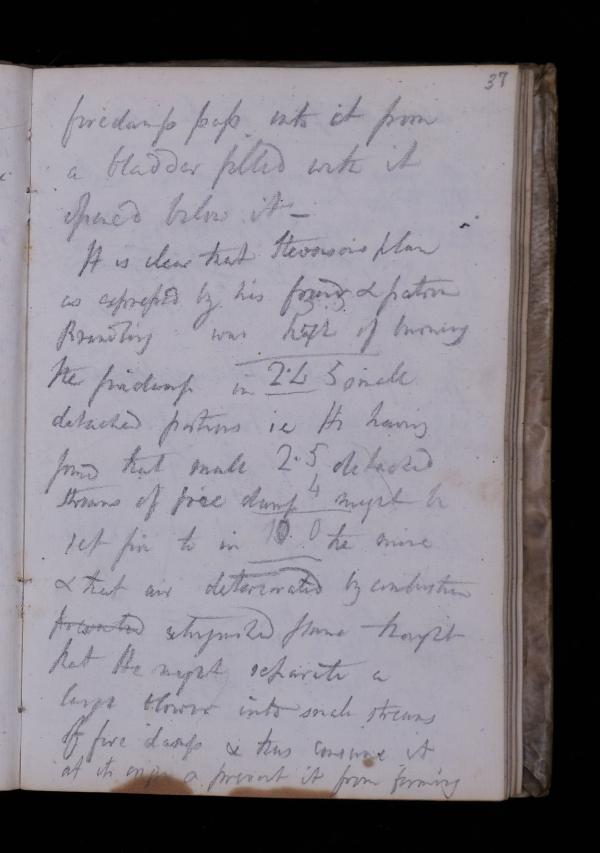 37
firedamp pass into it from
a bladder filled with it
opened below it –
It is clear that Stevensons plan
as expressed by his friend & patron
Brandling was that of burning
the firedamp in small
detached portions ie He having
found that small detached
streams of fire damp might be
set fire to in the mine
& that air deteriorated by combustion
prevented extinguished flame thought
that He might separate a
large blower into small streams
of fire damp & thus consume it
at its origin & prevent it from forming